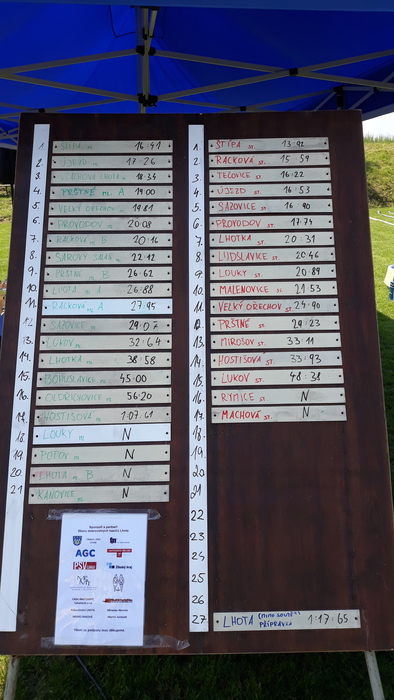 1. ŠTÍPA m. 16:41
2. ÚJEZD m. 17:26
3. LHOTA m. 18:34
4. PRŠTNÉ m. A 19:00
5. VELKÝ OŘECHOV m. 19:81
6. PROVODOV m. 20:08
7. RACKOVÁ m. B 20:16
8. m. 22:12
9. PRŠTNÉ m. B 26:62
10. LHOTA m. A 26:88
11. RACKOVÁ m. A 27:95
12. SAZOVICE m. 29:07
13. LUKOV m. 32:64
14. LHOTKA m. 38:58
15. BOHUSLAVICE m. 45:00
16. OLDŘICHOVICE m. 56:20
17. HOSTIŠOVÁ m. 1:07:61
18. LOUKY m. N
19. POZLOV m. N
20. LHOTA m. B N
21 KAŇOVICE m. N
1. ŠTÍPA st. 13:92
2. RACKOVÁ st. 15:59
3. TEČOVICE st. 16:22
4. ÚJEZD st. 16:53
5. SAZOVICE st. 16:90
6. PROVODOV st. 17:74
7. LHOTKA st. 20:31
8. LUDSLAVICE st. 20:46
9. LOUKY st. 20:89
10. MALENOVICE st. 21:53
11. VELKÝ OŘECHOV st. 24:90
12. PRŠTNÉ st. 29:23
13. MIROŠOV st. 33:11
14. HOSTIŠOVÁ st. 33:93
15. LUKOV st. 48:38
16. RYMICE st. N
17. MACHOVÁ st. N
18.
19.
20.
21
22
23
24
25
26
27 LHOTA (MIMO SOUTĚŽ) PŘÍPRAVKA 1:17:65
AGC
PSV
Zlínský kraj